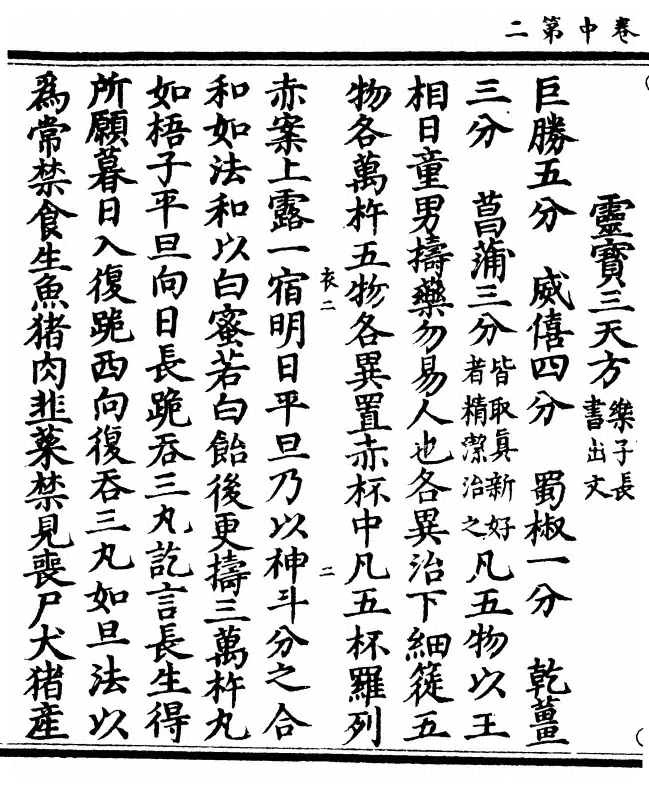 卷中第二
靈寶三天方樂子長書出文
巨勝五分　威僖四分　蜀椒一分　乾薑
三分　菖蒲三分皆取真新好者精潔治之凡五物以王
相日童男擣藥勿易人也各異治下細簁五
物各萬杵五物各異置赤杯中凡五杯羅列
赤案上露一宿明日平旦乃以神斗分之合
衣二
二
和如法和以白蜜若白飴後更擣三萬杵丸
如梧子平旦向日長跪吞三丸訖言長生得
所願暮日入復跪西向復吞三丸如旦法以
為常禁食生魚猪肉韭菜禁見喪尸犬猪產